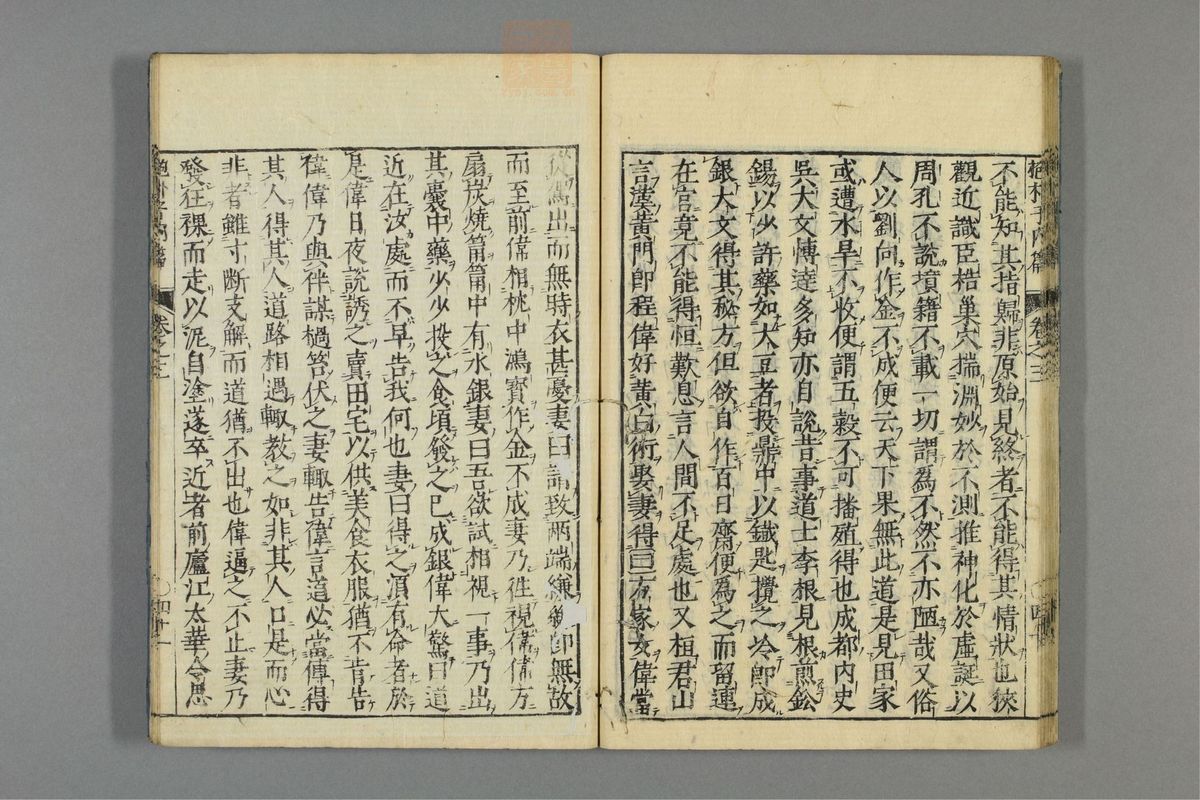 不能知其指歸非原始見終者不能得其情狀也狹
觀近識臣梏巢穴揣淵妙於不測推神化於虛誕以
周孔不說墳籍不載一切謂為不然不亦陋哉又俗
人以劉向作金不成便云天下果無此道是見田家
或遭水旱不收便謂五穀不可播殖得也成都内史
吳大文愽達多知亦自說昔事道士李根見根煎鈆
錫以少許藥如大豆者投鼎中以鐵匙攪之冷即成
銀大文得其秘方但欲自作百日齋便為之而留連
在官竟不能得恒歎息言人間不足處也又桓君山
言漢黃門郎程偉好黃白術娶妻得 方家女偉當
從駕出而無時衣甚憂妻曰請致兩端縑縑即無故
而至前偉桉枕中鴻寳作金不成妻乃徃視偉偉方
扇炭燒筩筩中有水銀妻曰吾欲試相視一事乃出
其囊中藥少少投之食頃發之已成銀偉大驚曰道
近在汝處而不早告我何也妻曰得之須有命者於
是偉日夜說誘之賣田宅以供美食衣服猶不肯告
偉偉乃與伴謀檛笞伏之妻輙告偉言道必當傳得
其人得其人道路相遇輙教之如非其人口是而心
非者雖寸断支解而道猶不出也偉逼之不止妻乃
發狂裸而走以泥自塗遂卒近者前廬江太華令思
抱朴子内篇
卷之三
四十
抱朴子内篇
卷之三
四十一